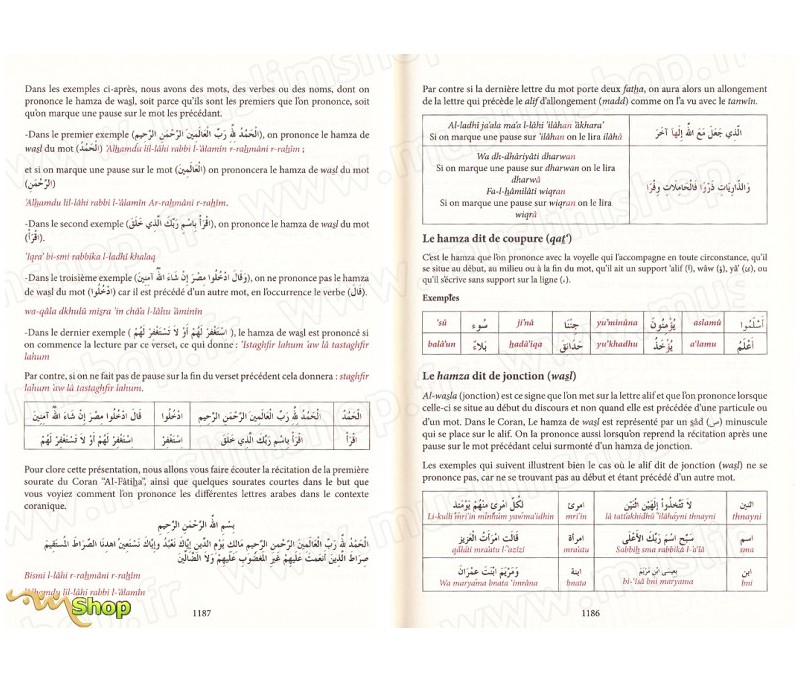 Par contre si la dernière lettre du mot porte deux fatḥa, on aura alors un allongement
de la lettre qui précède le alif d'allongement (madd) comme on l'a vu avec le tanwîn.
Al-ladhî ja'ala ma'a l-lâhi 'ilâhan 'âkhara'
Si on marque une pause sur 'ilâhan on le lira ilâhâ
الَّذِي جَعَلَ مَعَ اللَّهِ إِلَهاً آخَرَ
Wa dh-dhâriyâti dharwan
Si on marque une pause sur dharwan on le lira
dharwâ
Fa-l-ḥâmilâti wiqran
Si on marque une pause sur wiqran on le lira
wiqrâ
وَالذَّارِيَاتِ ذَرْوًا فَالْحَامِلَاتِ وِقْرًا
Le hamza dit de coupure (qaṭ')
C'est le hamza que l'on prononce avec la voyelle qui l'accompagne en toute circonstance, qu'il
se situe au début, au milieu ou à la fin du mot, qu'il ait un support 'alif (أ), wâw (ؤ), yâ' (ئ), ou
qu'il s'écrive sans support sur la ligne (ء).
Exemples
'sû سُوء ji'nâ جِئْنَا yu'minûna يُؤْمِنُونَ aslamû أَسْلَمُوا
balâ'un بَلَاءٌ ḥadâ'iqa حَدَائِقَ yu'khadhu يُؤْخَذُ a'lamu أَعْلَمُ
Le hamza dit de jonction (waṣl)
Al-waṣla (jonction) est ce signe que l'on met sur la lettre alif et que l'on prononce lorsque
celle-ci se situe au début du discours et non quand elle est précédée d'une particule ou
d'un mot. Dans le Coran, Le hamza de waṣl est représenté par un ṣâd (ص) minuscule
qui se place sur le alif. On la prononce aussi lorsqu'on reprend la récitation après une
pause sur le mot précédant celui surmonté d'un hamza de jonction.
Les exemples qui suivent illustrent bien le cas où le alif dit de jonction (waṣl) ne se
prononce pas, car ne se trouvant pas au début et étant précédé d'un autre mot.
لِكُلِّ امْرِئٍ مِنْهُمْ يَوْمَئِذٍ امرئ لَا تَتَّخِذُوا إِلَهَيْنِ اثْنَيْنِ اثنين
Li-kulli mri'in minhum yawma'idhin mri'in lâ tattakhidhû 'ilâhayni thnayni thnayni
قَالَتِ امْرَأَتُ الْعَزِيزِ امرأة سَبِّحِ اسْمَ رَبِّكَ الْأَعْلَى اسم
qâlati mra'atu l-'azîzi mra'atu Sabbiḥ sma rabbika l-a'lâ sma
وَمَرْيَمَ ابْنَتَ عِمْرَانَ ابنة بِعِيسَى ابْنِ مَرْيَمَ ابن
Wa maryama bnata 'imrâna bnata bi-'îsâ bni maryama bni
1186
Dans les exemples ci-après, nous avons des mots, des verbes ou des noms, dont on
prononce le hamza de waṣl, soit parce qu'ils sont les premiers que l'on prononce, soit
qu'on marque une pause sur le mot les précédant.
-Dans le premier exemple (الْحَمْدُ لِلَّهِ رَبِّ الْعَالَمِينَ الرَّحْمَنِ الرَّحِيمِ), on prononce le hamza de
waṣl du mot (الْحَمْدُ) 'Alḥamdu lil-lâhi rabbi l-'âlamîn r-raḥmâni r-raḥîm ;
et si on marque une pause sur le mot (الْعَالَمِينَ) on prononcera le hamza de waṣl du mot
(الرَّحْمَنِ)
'Alḥamdu lil-lâhi rabbi l-'âlamîn Ar-raḥmâni r-raḥîm.
-Dans le second exemple (اقْرَأْ بِاسْمِ رَبِّكَ الَّذِي خَلَقَ), on prononce le hamza de waṣl du mot
(اقْرَأْ).
'Iqra' bi-smi rabbika l-ladhî khalaq
-Dans le troisième exemple (وَقَالَ ادْخُلُوا مِصْرَ إِنْ شَاءَ اللَّهُ آمِنِينَ), on ne prononce pas le hamza
de waṣl du mot (ادْخُلُوا) car il est précédé d'un autre mot, en l'occurrence le verbe (قَالَ).
wa-qâla dkhulû miṣra 'in châ'a l-lâhu 'âminîn
-Dans le dernier exemple ( اسْتَغْفِرْ لَهُمْ أَوْ لَا تَسْتَغْفِرْ لَهُمْ ), le hamza de waṣl est prononcé si
on commence la lecture par ce verset, ce qui donne : 'Istaghfir lahum 'aw lâ tastaghfir
lahum
Par contre, si on ne fait pas de pause sur la fin du verset précédent cela donnera : staghfir
lahum 'aw lâ tastaghfir lahum.
قَالَ ادْخُلُوا مِصْرَ إِنْ شَاءَ اللَّهُ آمِنِينَ ادْخُلُوا الْحَمْدُ لِلَّهِ رَبِّ الْعَالَمِينَ الرَّحْمَنِ الرَّحِيمِ الْحَمْدُ
اسْتَغْفِرْ لَهُمْ أَوْ لَا تَسْتَغْفِرْ لَهُمْ اسْتَغْفِرْ اقْرَأْ بِاسْمِ رَبِّكَ الَّذِي خَلَقَ اقْرَأْ
Pour clore cette présentation, nous allons vous faire écouter la récitation de la première
sourate du Coran "Al-Fâtiḥa", ainsi que quelques sourates courtes dans le but que
vous voyiez comment l'on prononce les différentes lettres arabes dans le contexte
coranique.
بِسْمِ اللَّهِ الرَّحْمَنِ الرَّحِيمِ
الْحَمْدُ لِلَّهِ رَبِّ الْعَالَمِينَ الرَّحْمَنِ الرَّحِيمِ مَالِكِ يَوْمِ الدِّينِ إِيَّاكَ نَعْبُدُ وَإِيَّاكَ نَسْتَعِينُ اهْدِنَا الصِّرَاطَ الْمُسْتَقِيمَ
صِرَاطَ الَّذِينَ أَنْعَمْتَ عَلَيْهِمْ غَيْرِ الْمَغْضُوبِ عَلَيْهِمْ وَلَا الضَّالِّينَ
Bismi l-lâhi r-raḥmâni r-raḥîm
'Alḥamdu lil-lâhi rabbi l-'âlamîn
1187
Shop